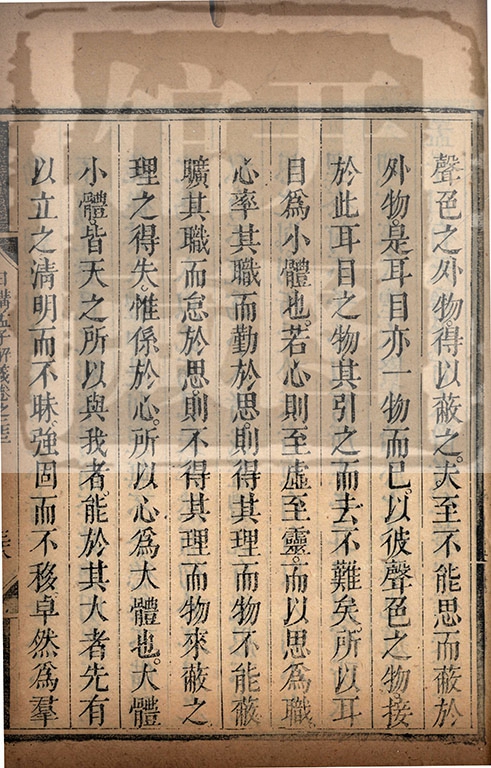 聲色之外物得以蔽之。夫至不能思而蔽於
外物。是耳目亦一物而已。以彼聲色之物。接
於此耳目之物。其引之而去不難矣。所以耳
目爲小體也。若心則至虛至靈。而以思爲職。
心率其職而勤於思。則得其理而物不能蔽。
曠其職而怠於思。則不得其理而物來蔽之。
理之得失。惟係於心。所以心爲大體也。大體
小體皆天之所以與我者。能於其大者先有
以立之。清明而不昧。強固而不移。卓然爲羣
日講五子解義卷之